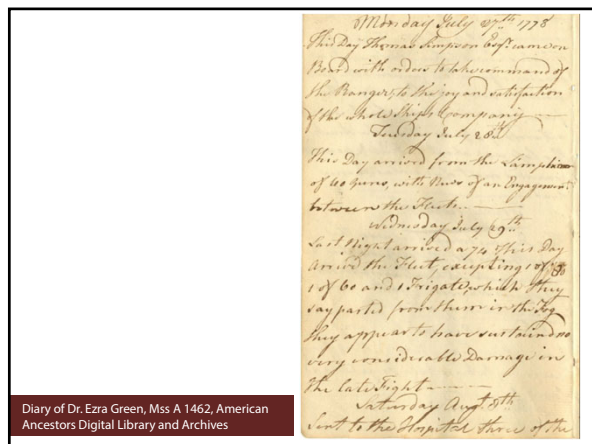 Monday July 27th 1778
This Day Thomas Simpson Esqr. came on
Board with orders to take command of
the Ranger, to the joy and satisfaction
of the whole Ships Company
Tuesday July 28th
This Day arrived from the
of 60 Guns, with News of an Engagement
between the Fleets
Wednesday July 29th
Last Night arrived a 74 This Day
Arrived the Fleet, excepting 1 of
1 of 60 and 1 Frigate, which they
say parted from them in the Fog
they appear to have sustaind no
very considerable Damage in
the late Fight
Saturday Augt. 8th
Sent to the Hospital three of the
Diary of Dr. Ezra Green, Mss A 1462, American
Ancestors Digital Library and Archives